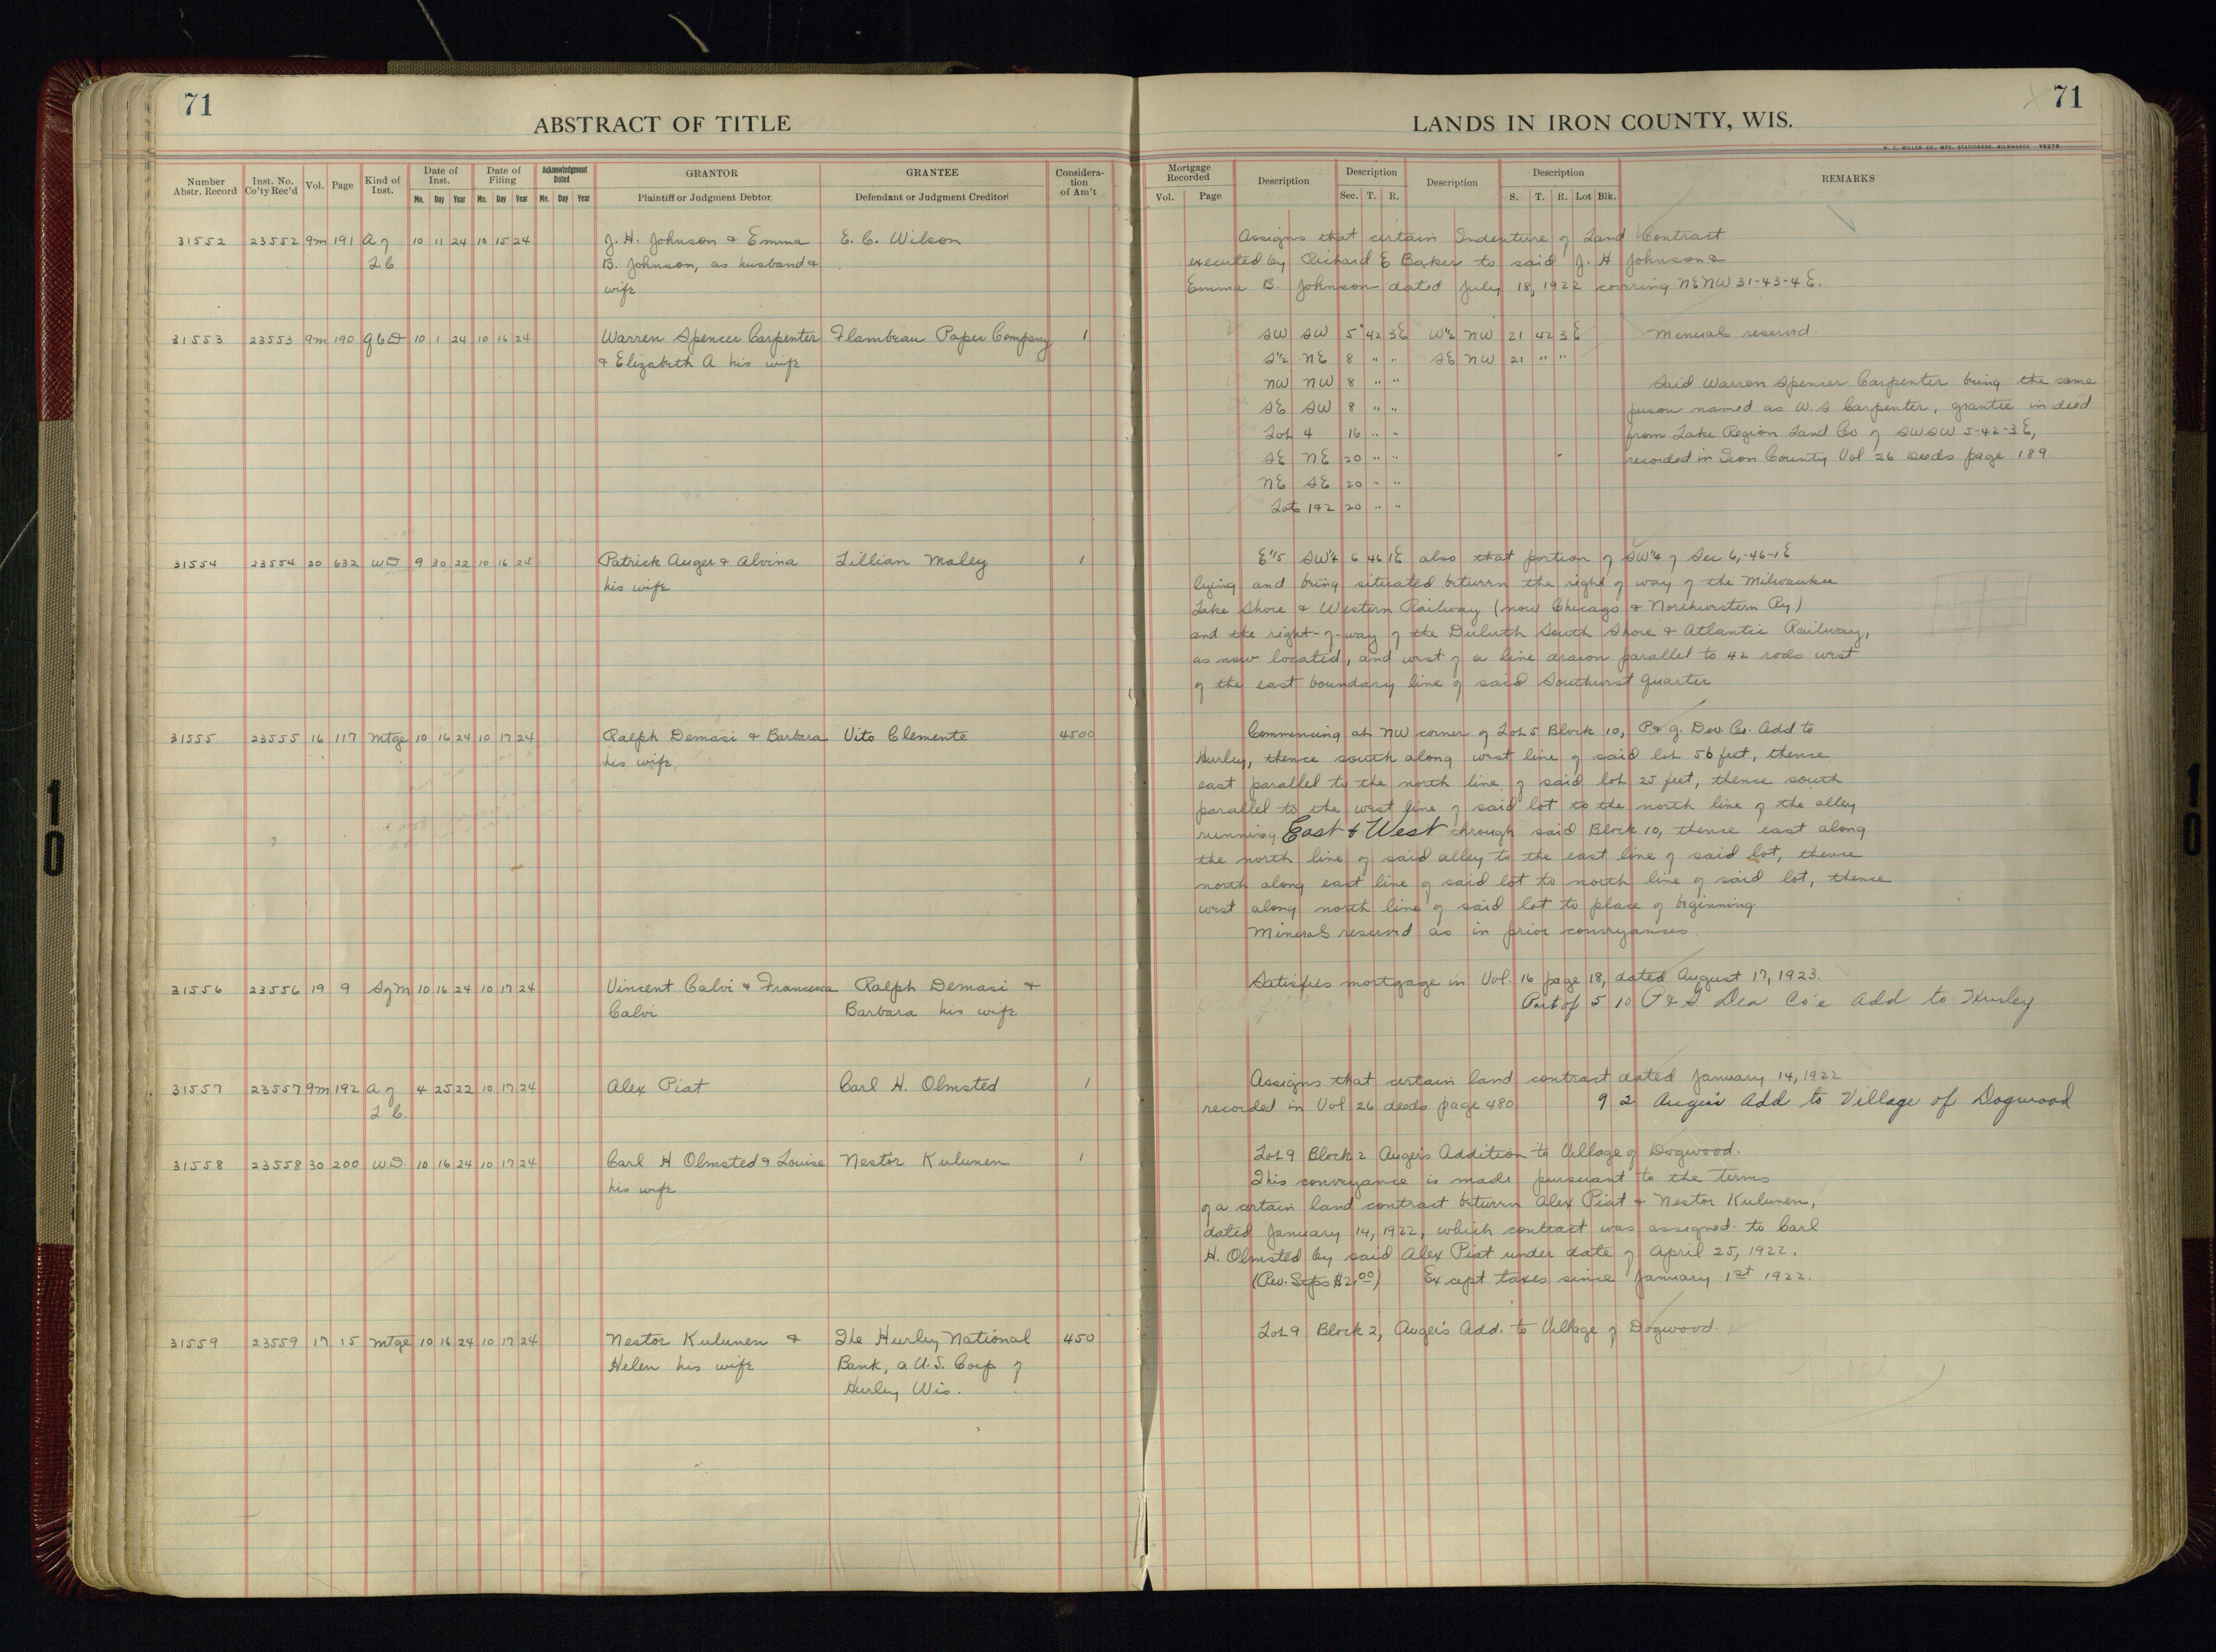 71
ABSTRACT OF TITLE
Number Abstr. Record
Inst. No. Co'ty Rec'd
Vol.
Page
Kind of Inst.
Date of Inst.
Mo. Day Year
Date of Filing
Mo. Day Year
Acknowledgment Dated
Mo. Day Year
GRANTOR
Plaintiff or Judgment Debtor
GRANTEE
Defendant or Judgment Creditor
Considera-
tion
of Am't
31552 23552 9m 191 A of 10 11 24 10 15 24 J. H. Johnson & Emma E. C. Wilson
L.C B. Johnson, as husband &
wife
31553 23553 9m 190 10 1 24 10 16 24 Warren Spencer Carpenter Flambeau Paper Company 1
& Elizabeth A his wife
31554 23554 20 632 WD 9 30 22 10 16 24 Patrick Auger & Alvina Lillian Maley 1
his wife
31555 23555 16 117 Mtge 10 16 24 10 17 24 Ralph Demasi & Barbara Vito Clemente 4500
his wife
31556 23556 19 9 S of M 10 16 24 10 17 24 Vincent Calvi & Francesca Ralph Demasi &
Calvi Barbara his wife
31557 23557 9m 192 A of 4 25 22 10 17 24 Alex Piat Carl H. Olmsted 1
L.C.
31558 23558 30 200 W.D. 10 16 24 10 17 24 Carl H Olmsted & Louise Nestor Kulunen 1
his wife
31559 23559 17 15 Mtge 10 16 24 10 17 24 Nestor Kulunen & The Hurley National 450
Helen his wife Bank, a U.S. Corp of
Hurley Wis.
71
LANDS IN IRON COUNTY, WIS.
H. C. MILLER CO., MFG. STATIONERS, MILWAUKEE
Mortgage Recorded
Vol. Page
Description
Description
Sec. T. R.
Description
Description
S. T. R. Lot Blk.
REMARKS
Assigns that certain Indenture of Land Contract
executed by Richard E Baker to said J. H Johnson &
Emma B. Johnson dated July 18, 1922 covering NENW 31-43-4E.
SW SW 5 42 3E W½ NW 21 42 3E Minerals reserved.
S½ NE 8 " " SE NW 21 " "
NW NW 8 " " Said Warren Spencer Carpenter being the same
SE SW 8 " " person named as W.S Carpenter, grantee in deed
Lot 4 16 " " from Lake Region Land Co of SWSW 5-42-3E,
SE NE 20 " " recorded in Iron County Vol 26 Deeds page 189.
NE SE 20 " "
Lots 1&2 20 " "
SW¼ 6 46 1E also that portion of SW¼ of Sec 6,-46-1E
lying and being situated between the right of way of the Milwaukee
Lake Shore & Western Railway (now Chicago & Northwestern Ry)
and the right-of-way of the Duluth South Shore & Atlantic Railway,
as now located, and west of a line drawn parallel to 42 rods west
of the east boundary line of said Southwest Quarter
Commencing at NW corner of Lot 5 Block 10, P & G. Dev. Co. Add to
Hurley, thence south along west line of said lot 56 feet, thence
east parallel to the north line of said lot 25 feet, thence south
parallel to the west line of said lot to the north line of the alley
running East & West through said Block 10, thence east along
the north line of said alley to the east line of said lot, thence
north along east line of said lot to north line of said lot, thence
west along north line of said lot to place of beginning.
Minerals reserved as in prior conveyances
Satisfies mortgage in Vol. 16 page 18, dated August 17, 1923.
Part of 5 10 P & G Dev Co's Add to Hurley
Assigns that certain land contract dated January 14, 1922
recorded in Vol 26 deeds page 480 9 2 Auger's Add to Village of Dogwood
Lot 9 Block 2 Augers Addition to Village of Dogwood.
This conveyance is made pursuant to the terms
of a certain land contract between Alex Piat & Nestor Kulunen,
dated January 14, 1922, which contract was assigned to Carl
H. Olmsted by said Alex Piat under date of April 25, 1922.
(Rev. Stps $2.00) Except taxes since January 1st 1922.
Lot 9 Block 2, Auger's Add. to Village of Dogwood.
10
10